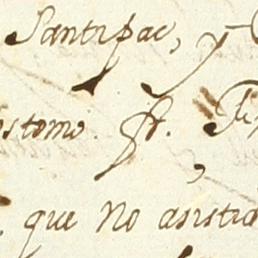 Santipac, y
ostomo. ft.
que no asistia